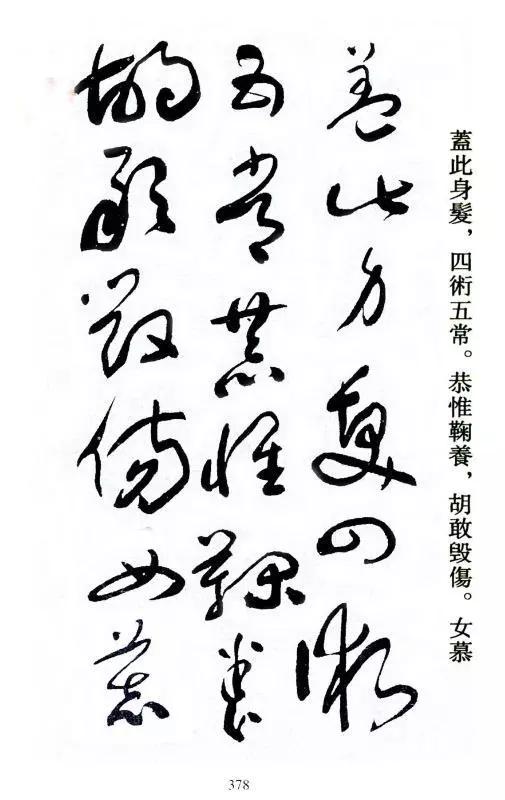 蓋此身髮，四術五常。恭惟鞠養，胡敢毀傷。女慕
蓋此身髮四術
五常恭惟鞠養
胡敢毀傷女慕
378